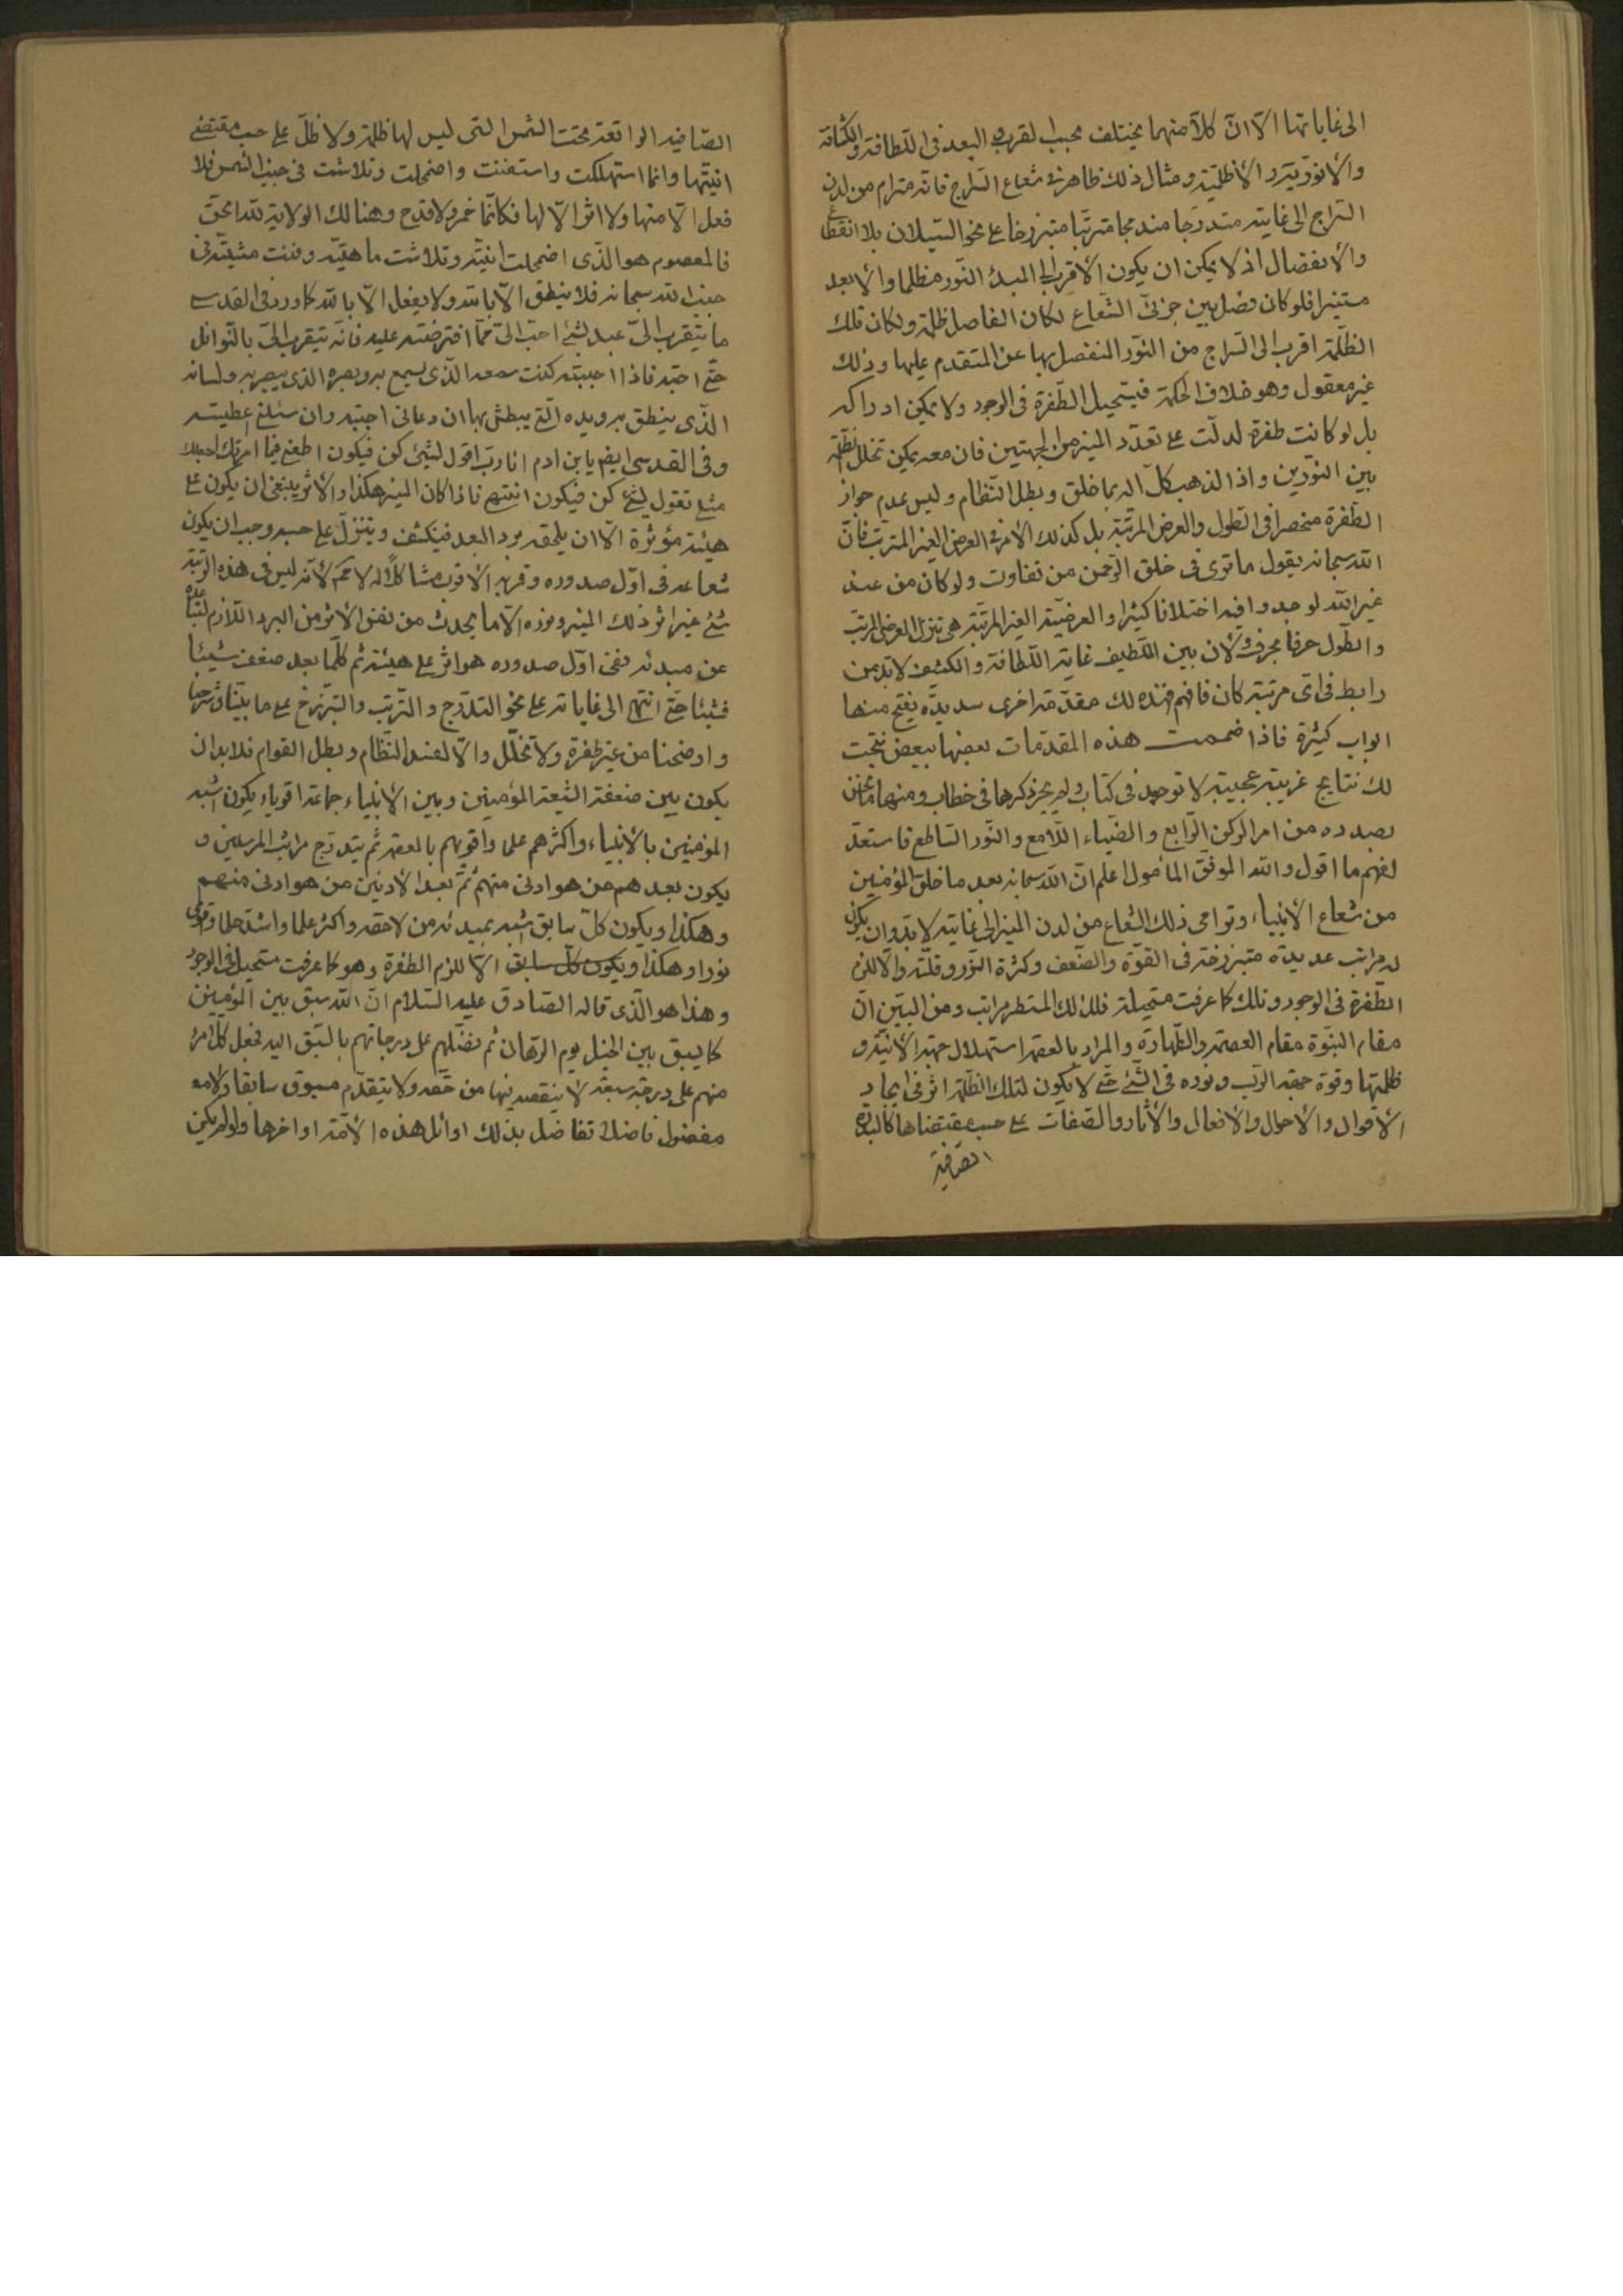 الى غاياتها الّا انّ كلّاً منهما يختلف بحسب القرب و البعد فى اللّطافة و الكثافة
والأنوريّة و الأظليّة و مثال ذلك ظاهر فى شعاع السّراج فانّه مترام من لدن
السّراج الى غايته متدرّجا مندمجا مترتّبا متبرزخا على نحو السّيلان بلا انقطاع
والأنفصال اذ لا يمكن ان يكون الأقرب الى المبدء النّور مظلما والأبعد
مستنيرا فلو كان فصل بين جزئى الشّعاع لكان الفاصل ظلمة ولكان تلك
الظّلمة اقرب الى السّراج من النّور المنفصل بها عن المتقدم عليها وذلك
غير معقول وهو خلاف الحكمة فيستحيل الطّفرة فى الوجود ولا يمكن ادراكه
بل لو كانت طفرة لدلّت على تعدّد المنير من الجهتين فان معه يمكن تخلل الظّلمة
بين النّورين واذا لذهب كلّ اله بما خلق وبطل النّظام وليس عدم جواز
الطّفرة منحصرا فى الطول والعرض المرتّبة بل كذلك الأمر فى العرض الغير المترتب فانّ
الله سبحانه يقول ما ترى فى خلق الرّحمن من تفاوت ولو كان من عند
غير الله لوجدوا فيه اختلافا كثيرا والعرضيّة الغير المرتّبة هى تنزل العرض المرتّب
والطّول حرفا بحرف ولأن بين اللّطيف غاية اللّطافة والكثيف لابدّ من
رابط فى اى مرتبة كان فافهم فهذه لك مقدّمة اخرى سديدة يفتح منها
ابواب كثيرة فاذا ضممت هذه المقدّمات بعضها ببعض نتجت
لك نتايج غريبة عجيبة لا توجد فى كتاب ولم يجر ذكرها فى خطاب ومنها ما نحن
بصدده من امر الركن الرّابع والضّياء اللّامع والنّور السّاطع فاستعدّ
لفهم ما اقول والله الموفق المأمول اعلم انّ الله سبحانه بعد ما خلق المؤمنين
من شعاع الأنبياء وترامى ذلك الشّعاع من لدن المنير الى غايته لابدّ وان يكون
له مراتب عديدة متبرزخة فى القوّة والضّعف وكثرة النّور وقلّته والّا للزم
الطّفرة فى الوجود وتلك كما عرفت مستحيلة فلذلك المتطر مراتب ومن البيّن انّ
مقام النبوّة مقام العصمة والطّهارة والمراد بالعصمة استهلال جهة الأنيّة و
ظلمتها وقوة جهة الربّ ونوره فى الشّئ حتّى لا يكون لتلك الظّلمة اثر فى ايجاد
الأقوال والأحوال والأفعال والأثار والصّفات على حسب مقتضاها كالبلّورة
الصّافية
الصّافية الواقعة تحت الشّمس التى ليس لها ظلمة ولا ظلّ على حسب مقتضى
انيّتها وانّما استهلكت واستفنت واضمحلت وتلاشت فى جنب الشّمس فلا
فعل الّا منها ولا اثر الّا لها فكانّما خمر ولا قدح وهنالك الولاية لله الحقّ
فالمعصوم هو الذّى اضمحلت انيّته وتلاشت ماهيّته وفنت مشيّته فى
جنب الله سبحانه فلا ينطق الّا بالله ولا يفعل الّا بالله كما ورد فى القدسى
ما يتقرب الىّ عبد بشئ احبّ الىّ ممّا افترضته عليه فانّه يتقرب الىّ بالنّوافل
حتّى احبّه فاذا احببته كنت سمعه الذّى يسمع به وبصره الذى يبصر به ولسانه
الذّى ينطق به ويده الّتى يبطش بها ان دعانى اجبته وان سئلنى اعطيته
وفى القدسى ايضا يابن ادم انا ربّ اقول لشئ كن فيكون اطعنى فيما امرتك اجعلك
مثلى تقول لشئ كن فيكون انتهى فاذا كان المنير هكذا والأثر ينبغى ان يكون على
هيئة مؤثرة الّا ان يلحقه برد البعد فيكشف ويتنزّل على حسبه وجب ان يكون
شعاعه فى اوّل صدوره وقربه الأقرب مشاكلاً له لا محم لأنّه ليس فى هذه الرّتبة
شئ غير اثر ذلك المنير ونوره الّا ما يحدث من نفس الأثر من البرد اللّازم لتباعده
عن مبدئه ففى اوّل صدوره هو اثر على هيئته ثم كلّما بعد ضعف شيئا
فشيئا حتّى انتهى الى غاياته على نحو التدرّج والتّرتب والتبرّزخ على ما بيّنّا وشرحنا
واوضحنا من غير طفرة ولا تخلّل والّا لفسد النّظام وبطل القوام فلا بد ان
يكون بين ضعفة الشيعة المؤمنين وبين الأنبياء جماعة اقوياء يكون اشبه
المؤمنين بالأنبياء واكثرهم علما واقويهم بالعصمة ثم يتدرّج مراتب المرسلين و
يكون بعدهم من هو ادنى منهم ثمّ بعد الأدنين من هو ادنى منهم
وهكذا ويكون كلّ سابق اشبه بمبدئه من لاحقه واكثر علما واشدّ حلما واقوى
نورا وهكذا ويكون كلّ سابق الّا للزم الطفرة وهو كما عرفت مستحيل فى الوجود
وهذا هو الذّى قاله الصّادق عليه السّلام انّ الله سبق بين المؤمنين
كما يسبق بين الخيل يوم الرّهان ثم فضّلهم على درجاتهم بالسّبق اليه فجعل كلّ امرء
منهم على درجة سبقه لا ينقصه فيها من حقّه ولا يتقدّم مسبوق سابقا ولا
مفضول فاضلا تفاضل بذلك اوائل هذه الأمّة اواخرها ولو لم يكن